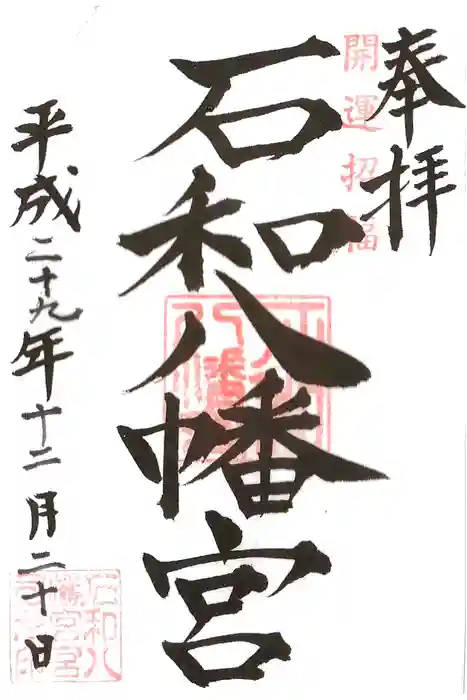 奉拝
開運招福
石和八幡宮
平成二十九年十二月二十日